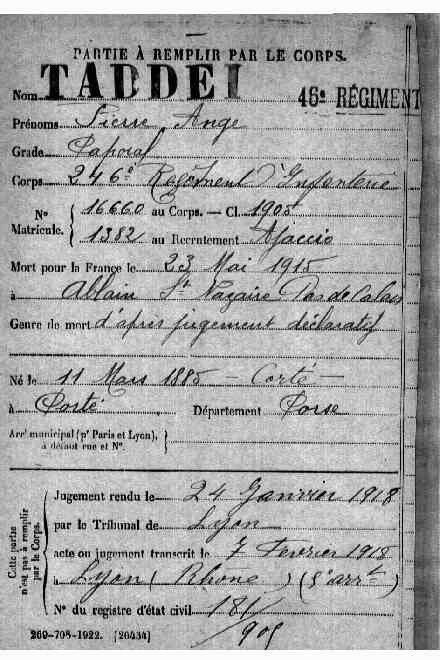 PARTIE À REMPLIR PAR LE CORPS.
Nom TADDEI
46e RÉGIMENT
Prénoms Pierre Ange
Grade Caporal
Corps 246e Régiment d'Infanterie
Nº Matricule. { 16660 au Corps. — Cl. 1905
1382 au Recrutement Ajaccio
Mort pour la France le 23 Mai 1915
à Ablain St Nazaire Pas de Calais
Genre de mort d'après jugement déclaratif
Né le 11 Mars 1885 — Corté —
à Corté Département Corse
Arrt municipal (pr Paris et Lyon), à défaut rue et Nº. }
Cette partie n'est pas à remplir par le Corps.
Jugement rendu le 24 Janvier 1918
par le Tribunal de Lyon
acte ou jugement transcrit le 7 Fevrier 1918
à Lyon (Rhone) (5e arrt)
Nº du registre d'état civil 181/
/905
269-708-1922. [26434]